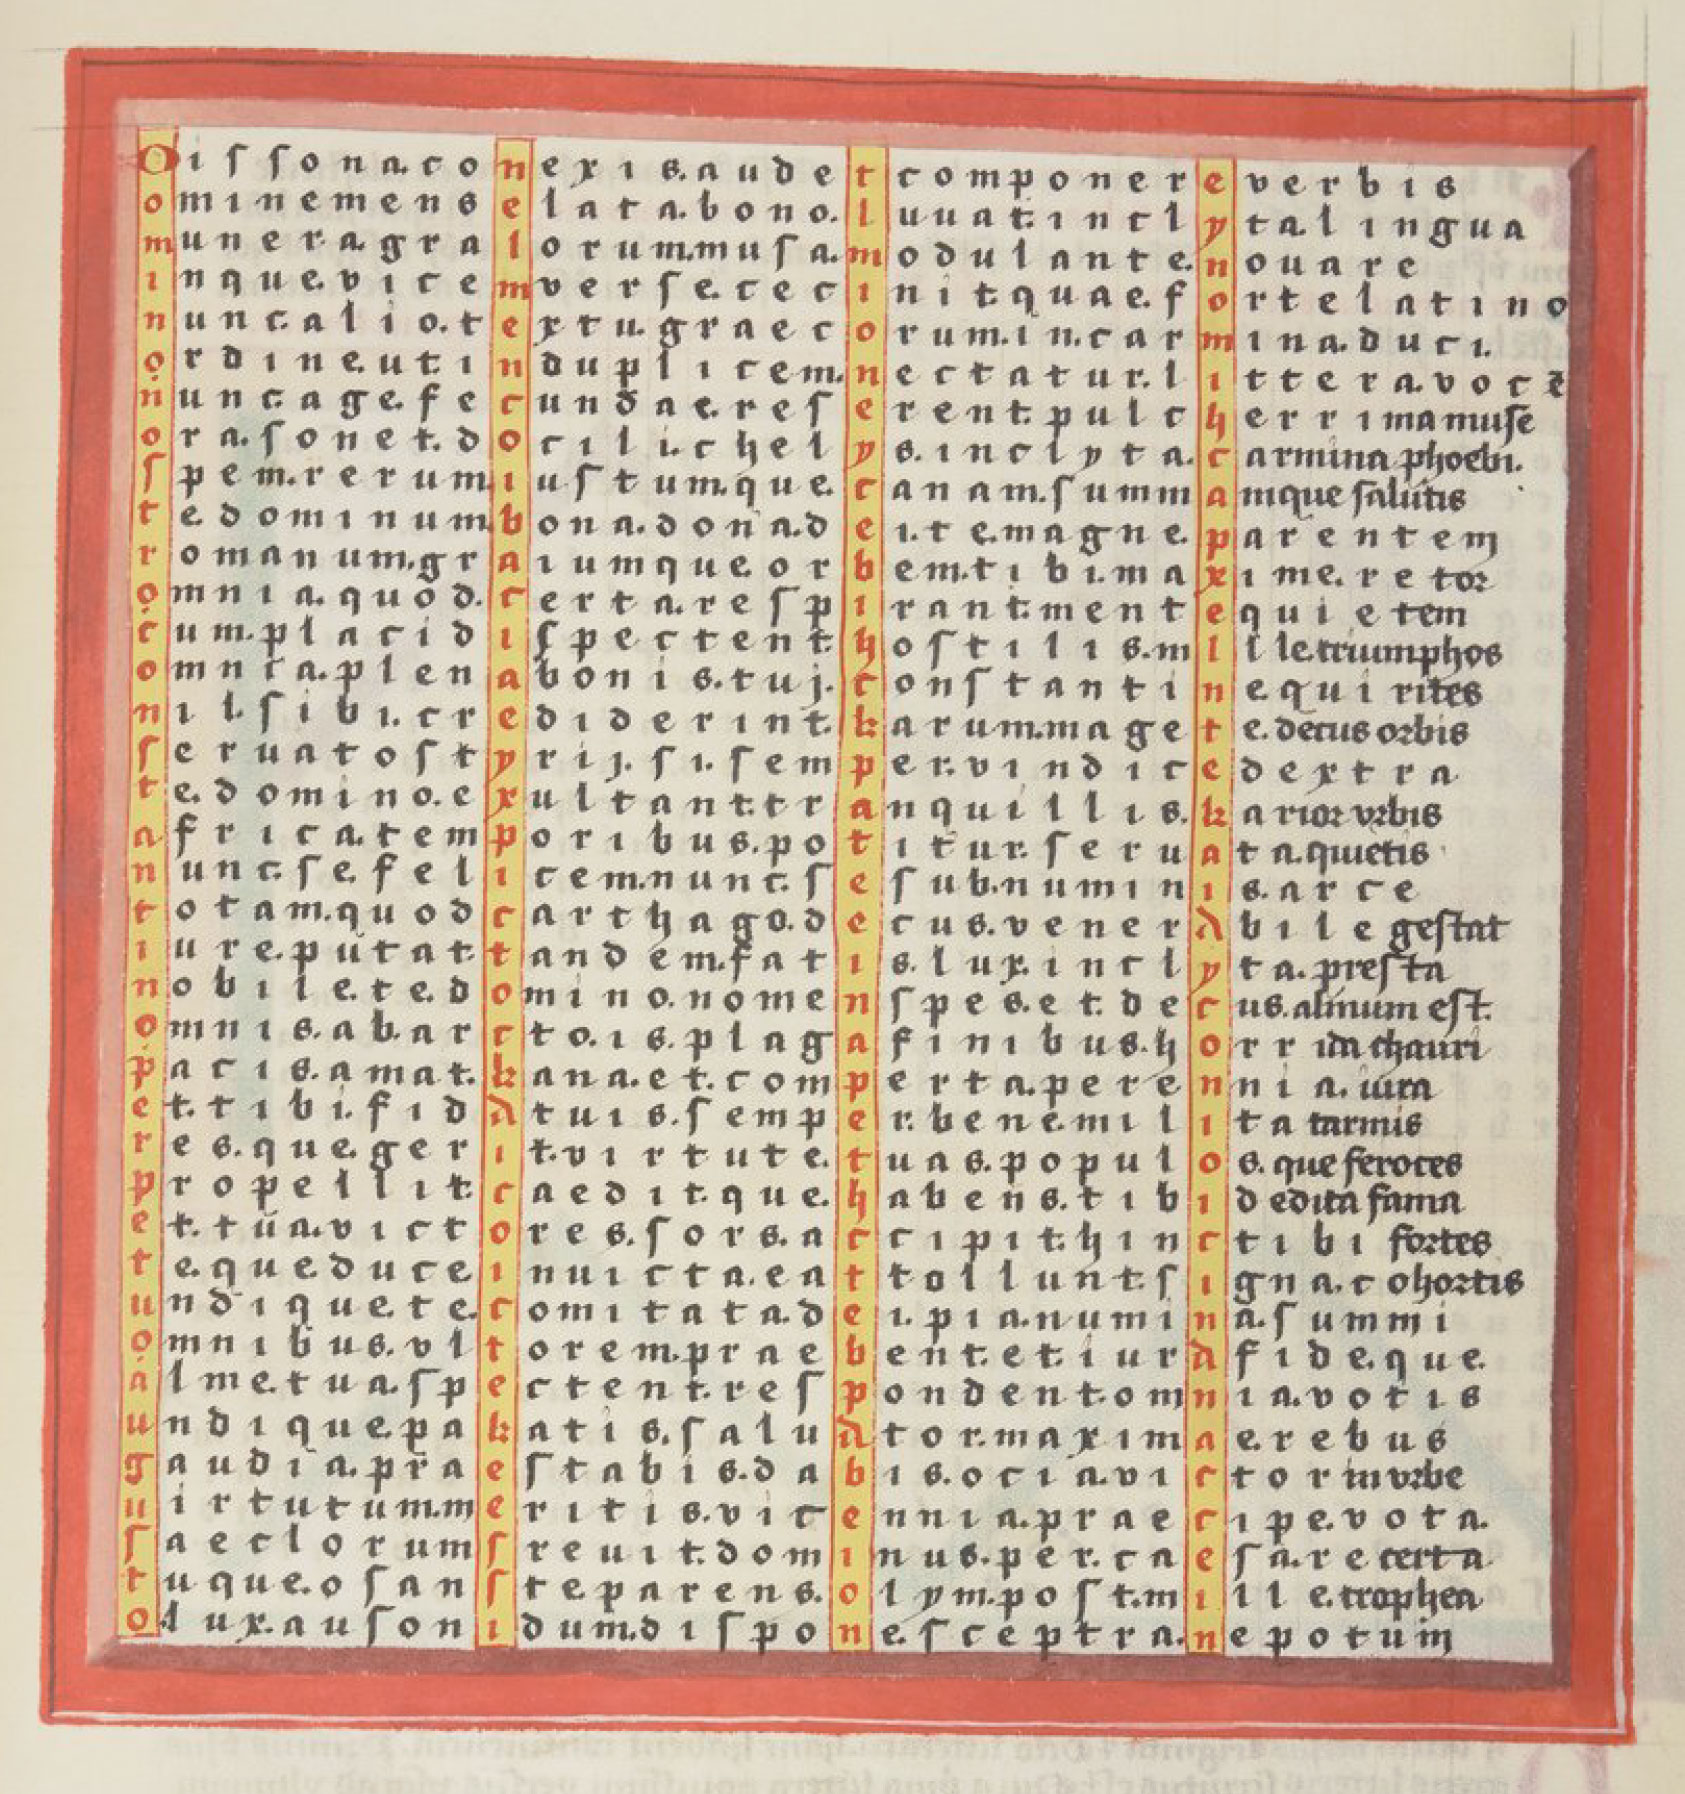 Dissona. conexis. audet componere verbis
omine mens elata. bono. luuat. inclyta. lingua
munera. graiorum. musa. modulante. nouare
inque. vicem verse. cecinit. quae. forte latino
nunc. alio. textu. graecorum. in. carmina. duci.
ordine. ut. in duplicem. nectatur. littera. vocẽ
nunc. age. fecundae. reserent. pulcherrima muse
ora. sonet. docili. chelys. inclyta. carmina phoebi.
spem. rerum. iustum. que. canam. summamque salutis
te dominum. bona. dona. dei. te. magne. parentem
romanum. graiumque. orbem. tibi. maxime. retor
omnia. quod. certa. respirant. mente quietem
cum. placidi spectent. hostilis. mille. triumphos
omnia. plena bonis. tuj. constantine quirites
nil. sibi. crediderint. karum. mage te. decus orbis
seruatos tyrij. si. semper. vindice dextra
te. domino. exultant. tranquillis. karior vrbis
africa. temporibus. potitur. seruata. quietis
nunc. se. felicem. nunc. se sub. numinis. arce
totam. quod carthago. decus. venerabile gestat
iure. putat. tandem. fatis. lux. inclyta. presta
nobile. te. domino. nomen spes. et. decus. almum est.
omnis. ab. arcto. is. plaga finibus. horrida chauri
pacis. amat. kana. et. comperta. perennia. iura
et. tibi. fida tuis. semper. bene. milita tarmis
res. que. gerit. virtute. tuas. populos. que feroces
propellit. caedit. que. habens. tibi dedita fama
et. tua. victores. sors. accipit. hinc tibi fortes
te. que duce inuicta. eattollunt. signa. cohortis
undique. te. comitata. dei. pia. numina. summi
omnibus. vltorem. praebent. et. iura fide. que.
alme. tua. spectent. respondent. omnia. votis
undique. pakatis. saluator. maxima e. rebus
gaudia. praestabis. dabis. ocia. victor in vrbe
uirtutum. meritis. vicennia. praecipe. vota.
saeclorum sreuit. dominus. per. caesa. re certa
tuque. o sanste parens. olym. post. mille. trophea
o lux. ausonidum. dispone. sceptra. nepotum